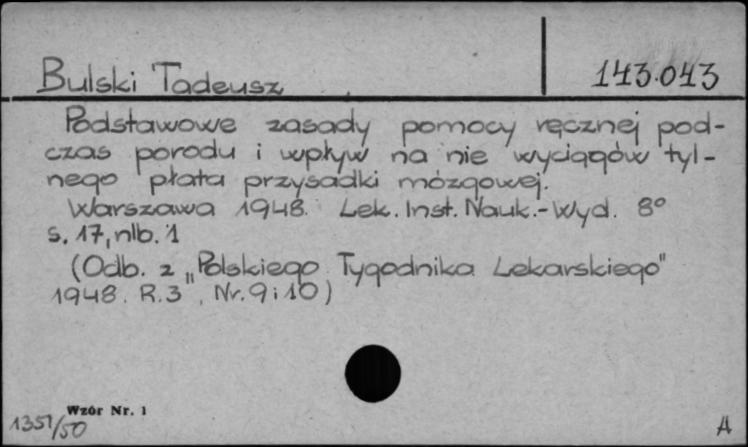 Bulski Tadeusz
143.043
Podstawowe zasady pomocy ręcznej pod-
czas porodu i wpływ na nie wyciągów tyl-
nego płata przysadki mózgowej.
Warszawa 1948. Lek. Inst. Nauk.-Wyd. 8°
s. 17, nlb. 1
(Odb. z „Polskiego Tygodnika Lekarskiego"
1948. R.3, Nr. 9 i 10)
Wzór Nr. 1
1351/50
A